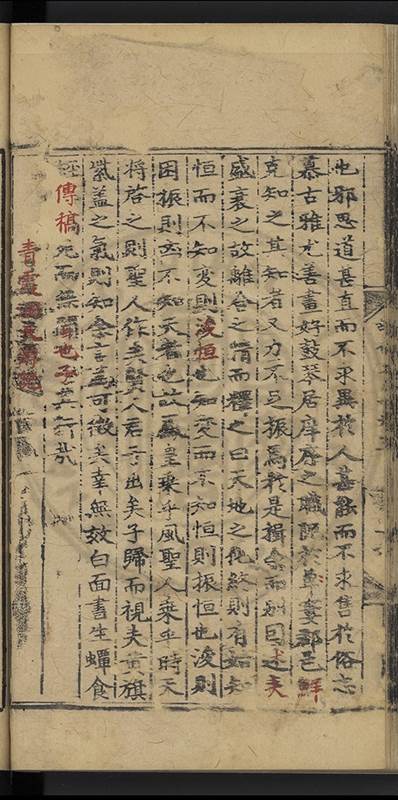 也邪思道甚直而不求異於人甚能而不求售於俗志
慕古雅尤善畫好鼓琴居庠序之職師於草蔓鄙邑鮮
克知之其知者又力不足振焉於是揖余而別曰述夫
盛衰之故離合之情而釋之曰天地之化終則有始知
恒而不知变則浚恒也知变而不知恒則振恒也浚則
困振則凶不知天者也故鳳皇乘乎風聖人乘乎時天
將啓之則聖人作矣賢人君子出矣子歸而視夫黄旗
紫盖之氣則知余言盖可徵矣幸無效白面書生蟬食
傳稿死而無聞也子其行哉
青霞